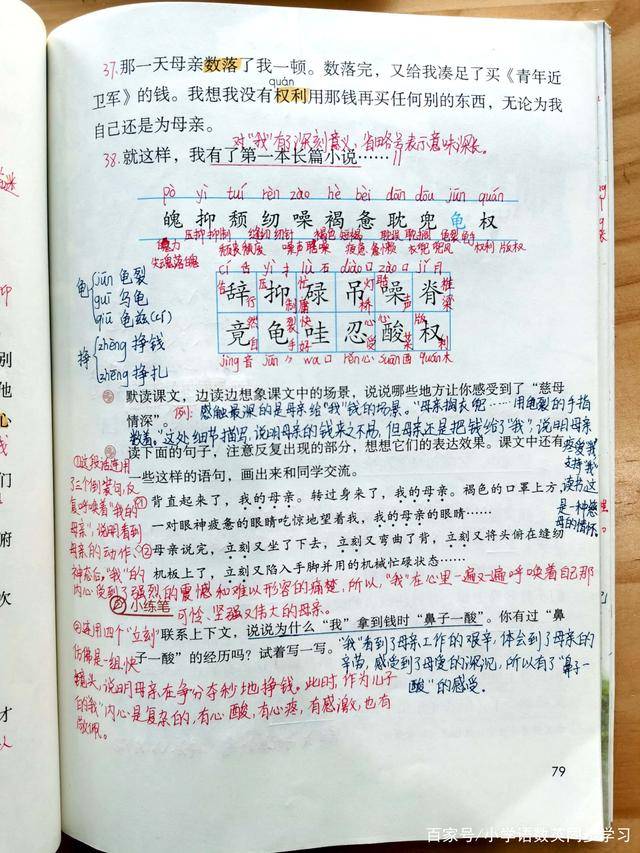 37.那一天母亲数落了我一顿。数落完，又给我凑足了买《青年近
quán
卫军》的钱。我想我没有权利用那钱再买任何别的东西，无论为我
自己还是为母亲。
对“我”有了深刻意义，省略号表示意味深长。
38.就这样，我有了第一本长篇小说……
pò yì tuí rèn zào hè bèi dān dōu jūn quán
魄 抑 颓 纫 噪 褐 惫 耽 兜 龟 权
压抑 抑制 缝纫 纫针 褐色 短褐 龟裂
魄力 噪声 疲惫 权利 版权
失魂落魄
cí yì lù diào zào jǐ
辞 抑 碌 吊 噪 脊
竟 龟 哇 忍 酸 权
jìng 音 jūn wa 口 rěn 心 suān 酉 quán 木
龟 jūn 龟裂
guī 乌龟
qiū 龟兹
挣 zhèng 挣钱
zhēng 挣扎
默读课文，边读边想象课文中的场景，说说哪些地方让你感受到了“慈母
情深”。
例：感触最深的是母亲给“我”钱的场景。“母亲掏衣兜……用龟裂的手指
数着。”这处细节描写，说明母亲的钱来之不易，但母亲还是把钱给了“我”，
疼爱我
支持“我”
读书，这
是一种慈
母的情怀。
读下面的句子，注意反复出现的部分，想想它们的表达效果。课文中还有
一些这样的语句，画出来和同学交流。
①背直起来了，我的母亲。转过身来了，我的母亲。褐色的口罩上方，
一对眼神疲惫的眼睛吃惊地望着我，我的母亲的眼睛……
②母亲说完，立刻又坐了下去，立刻又弯曲了背，立刻又将头俯在缝纫
机板上了，立刻又陷入手脚并用的机械忙碌状态……
①这段话运用
了三个倒装句，反
复呼唤着“我的
母亲”，说明看到
母亲的动作、
神态后，“我”的
内心受到了强烈的震撼和难以形容的痛楚，所以，“我”在心里一遍又一遍呼唤着自己那
可怜、坚强又伟大的母亲。
小练笔
联系上下文，说说为什么“我”拿到钱时“鼻子一酸”。你有过“鼻
子一酸”的经历吗？试着写一写。
“我”看到了母亲工作的艰辛，体会到了母亲的
辛劳，感受到了母爱的深沉，所以有了“鼻子一
酸”的感受。
②连用四个“立刻”
仿佛是一组快
镜头，说明母亲在争分夺秒地挣钱。此时，作为儿子
的“我”内心是复杂的，有心酸，有心疼，有感激，也有
敬佩。
79
百家号/小学语数英同步学习